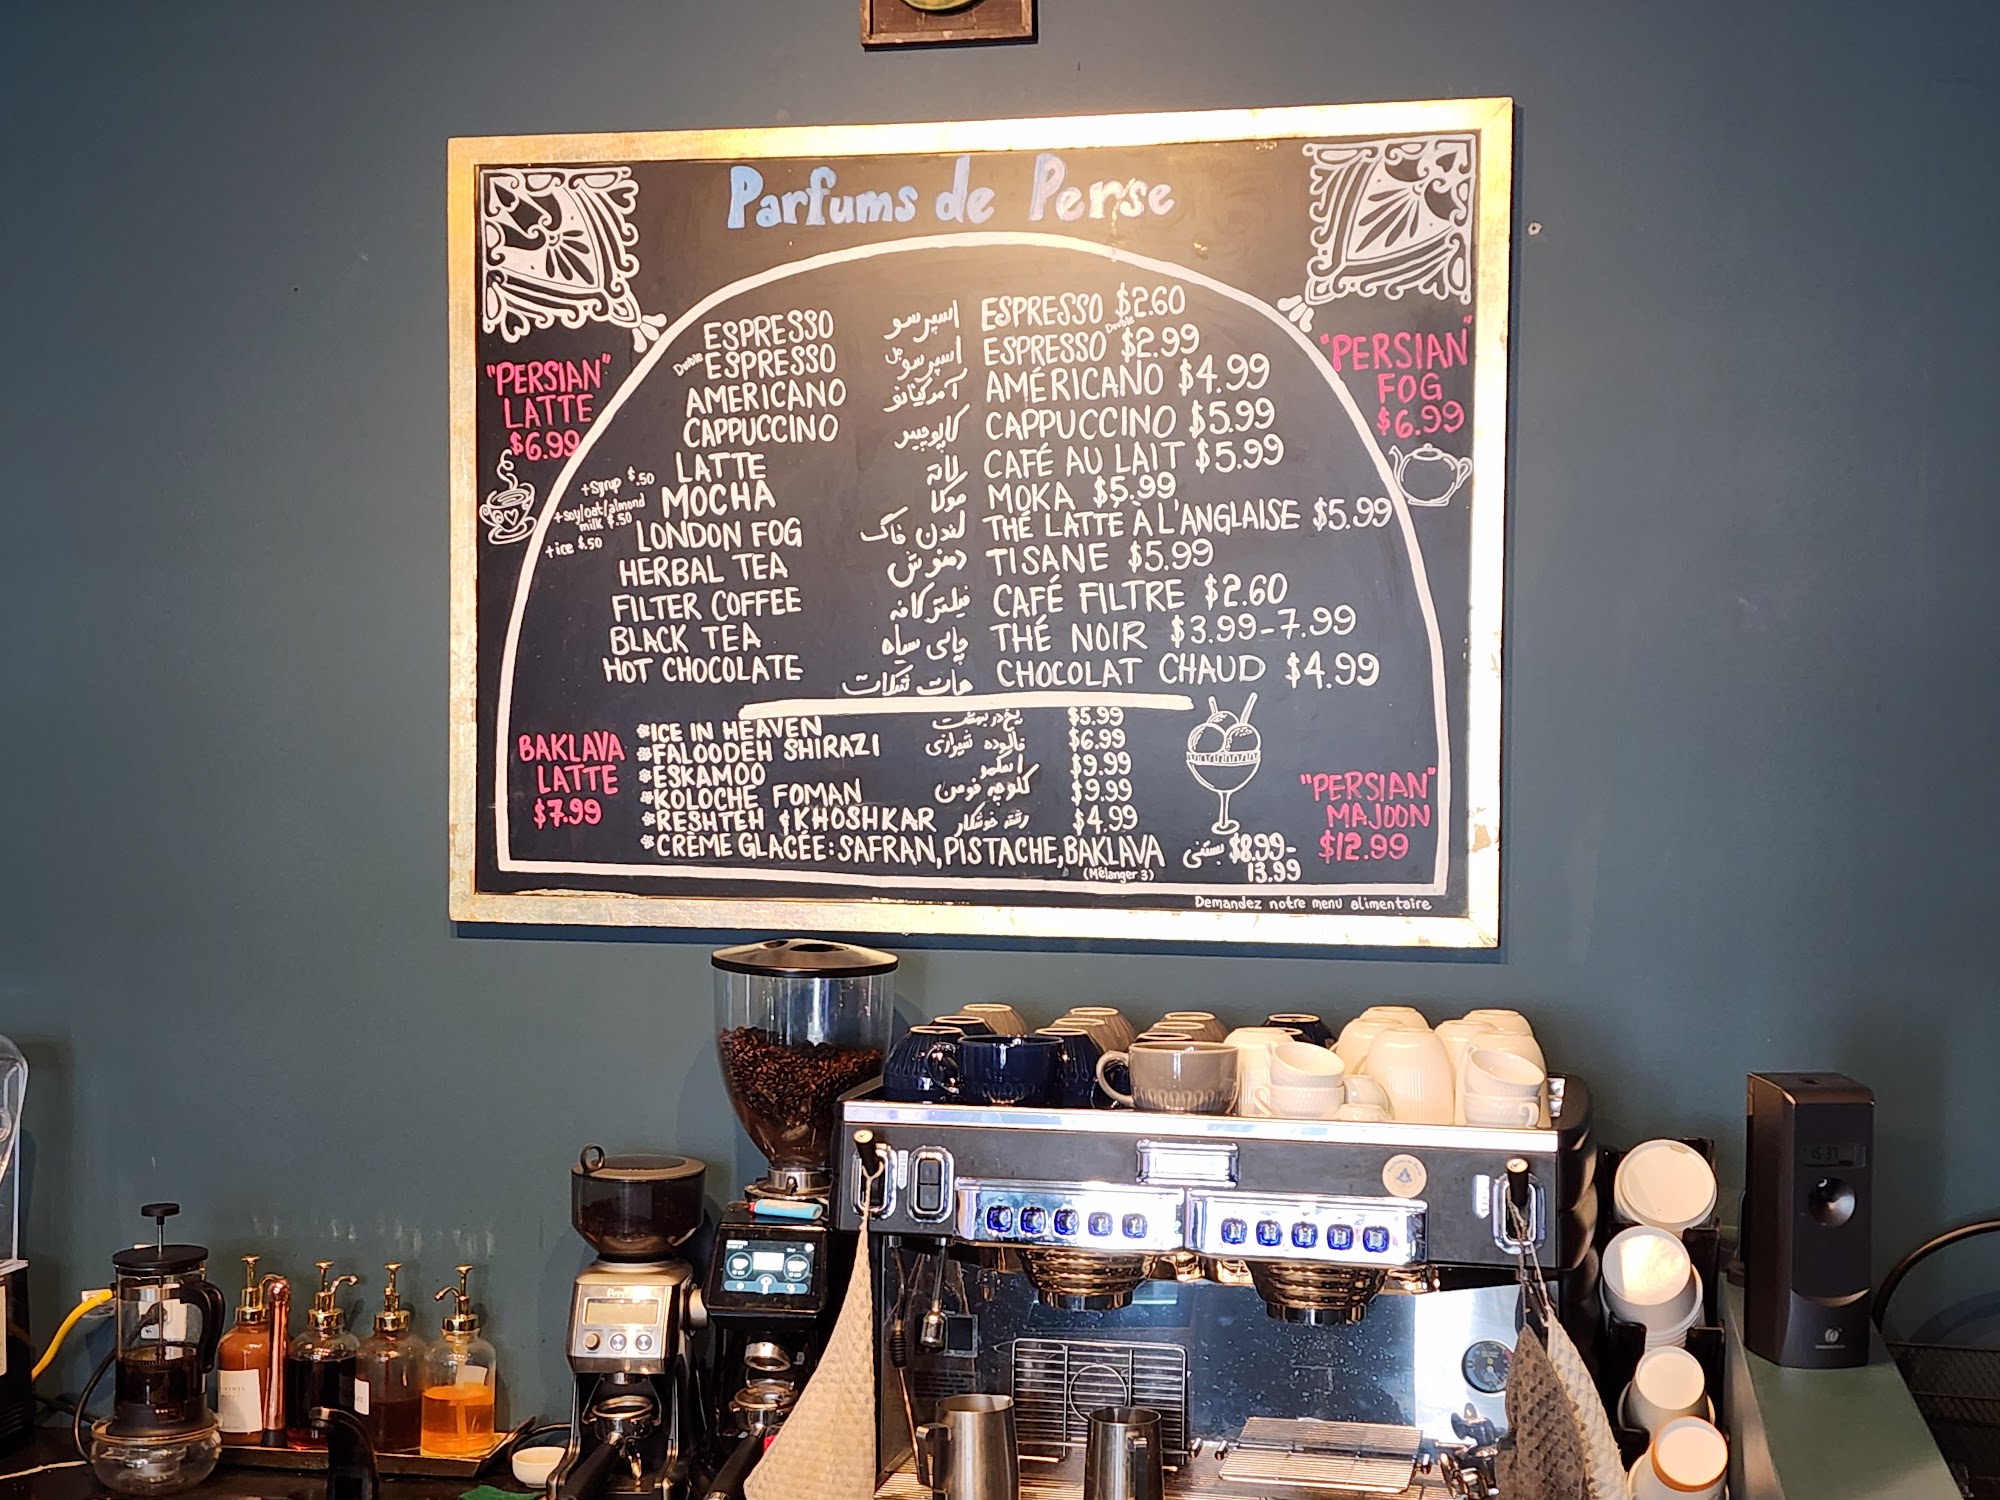 Parfums de Perse
"PERSIAN"
LATTE
$6.99
"PERSIAN"
FOG
$6.99
ESPRESSO اسپرسو ESPRESSO $2.60
Double ESPRESSO اسپرسو دبل ESPRESSO Double $2.99
AMERICANO آمریکانو AMÉRICANO $4.99
CAPPUCCINO کاپوچینو CAPPUCCINO $5.99
LATTE لاته CAFÉ AU LAIT $5.99
MOCHA موکا MOKA $5.99
LONDON FOG لندن فاگ THÉ LATTÉ À L'ANGLAISE $5.99
HERBAL TEA دمنوش TISANE $5.99
FILTER COFFEE فیلتر کافه CAFÉ FILTRE $2.60
BLACK TEA چای سیاه THÉ NOIR $3.99-7.99
HOT CHOCOLATE هات شکلات CHOCOLAT CHAUD $4.99
+syrup $.50
+soy/oat/almond
milk $.50
+ice $.50
BAKLAVA
LATTE
$7.99
*ICE IN HEAVEN یخ در بهشت $5.99
*FALOODEH SHIRAZI فالوده شیرازی $6.99
*ESKAMOO اسکمو $9.99
*KOLOCHE FOMAN کلوچه فومن $9.99
*RESHTEH & KHOSHKAR رشته خوشکار $4.99
*CRÈME GLACÉE: SAFRAN, PISTACHE, BAKLAVA بستنی $8.99-
13.99
(Mélanger 3)
"PERSIAN"
MAJOON
$12.99
Demandez notre menu alimentaire